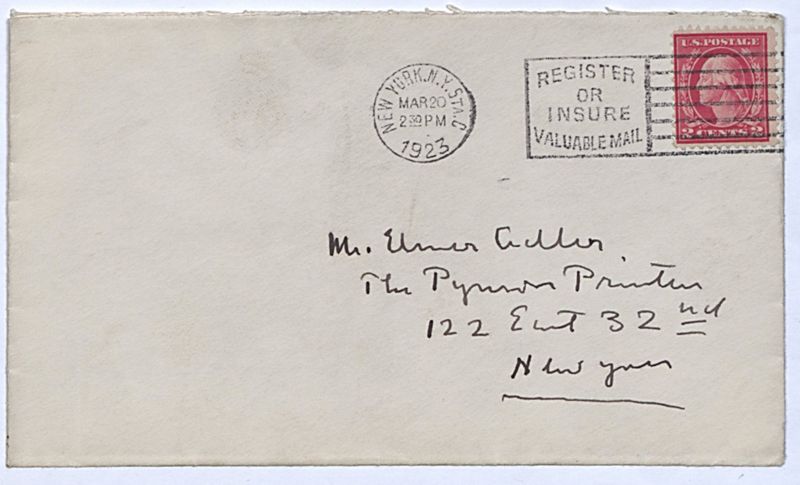 NEW YORK, N.Y. STA. C
MAR 20
2 30 PM
1923
REGISTER
OR
INSURE
VALUABLE MAIL
U.S. POSTAGE
2 CENTS 2
Mr. Elmer Adler
The Pynson Printers
122 East 32nd
New York